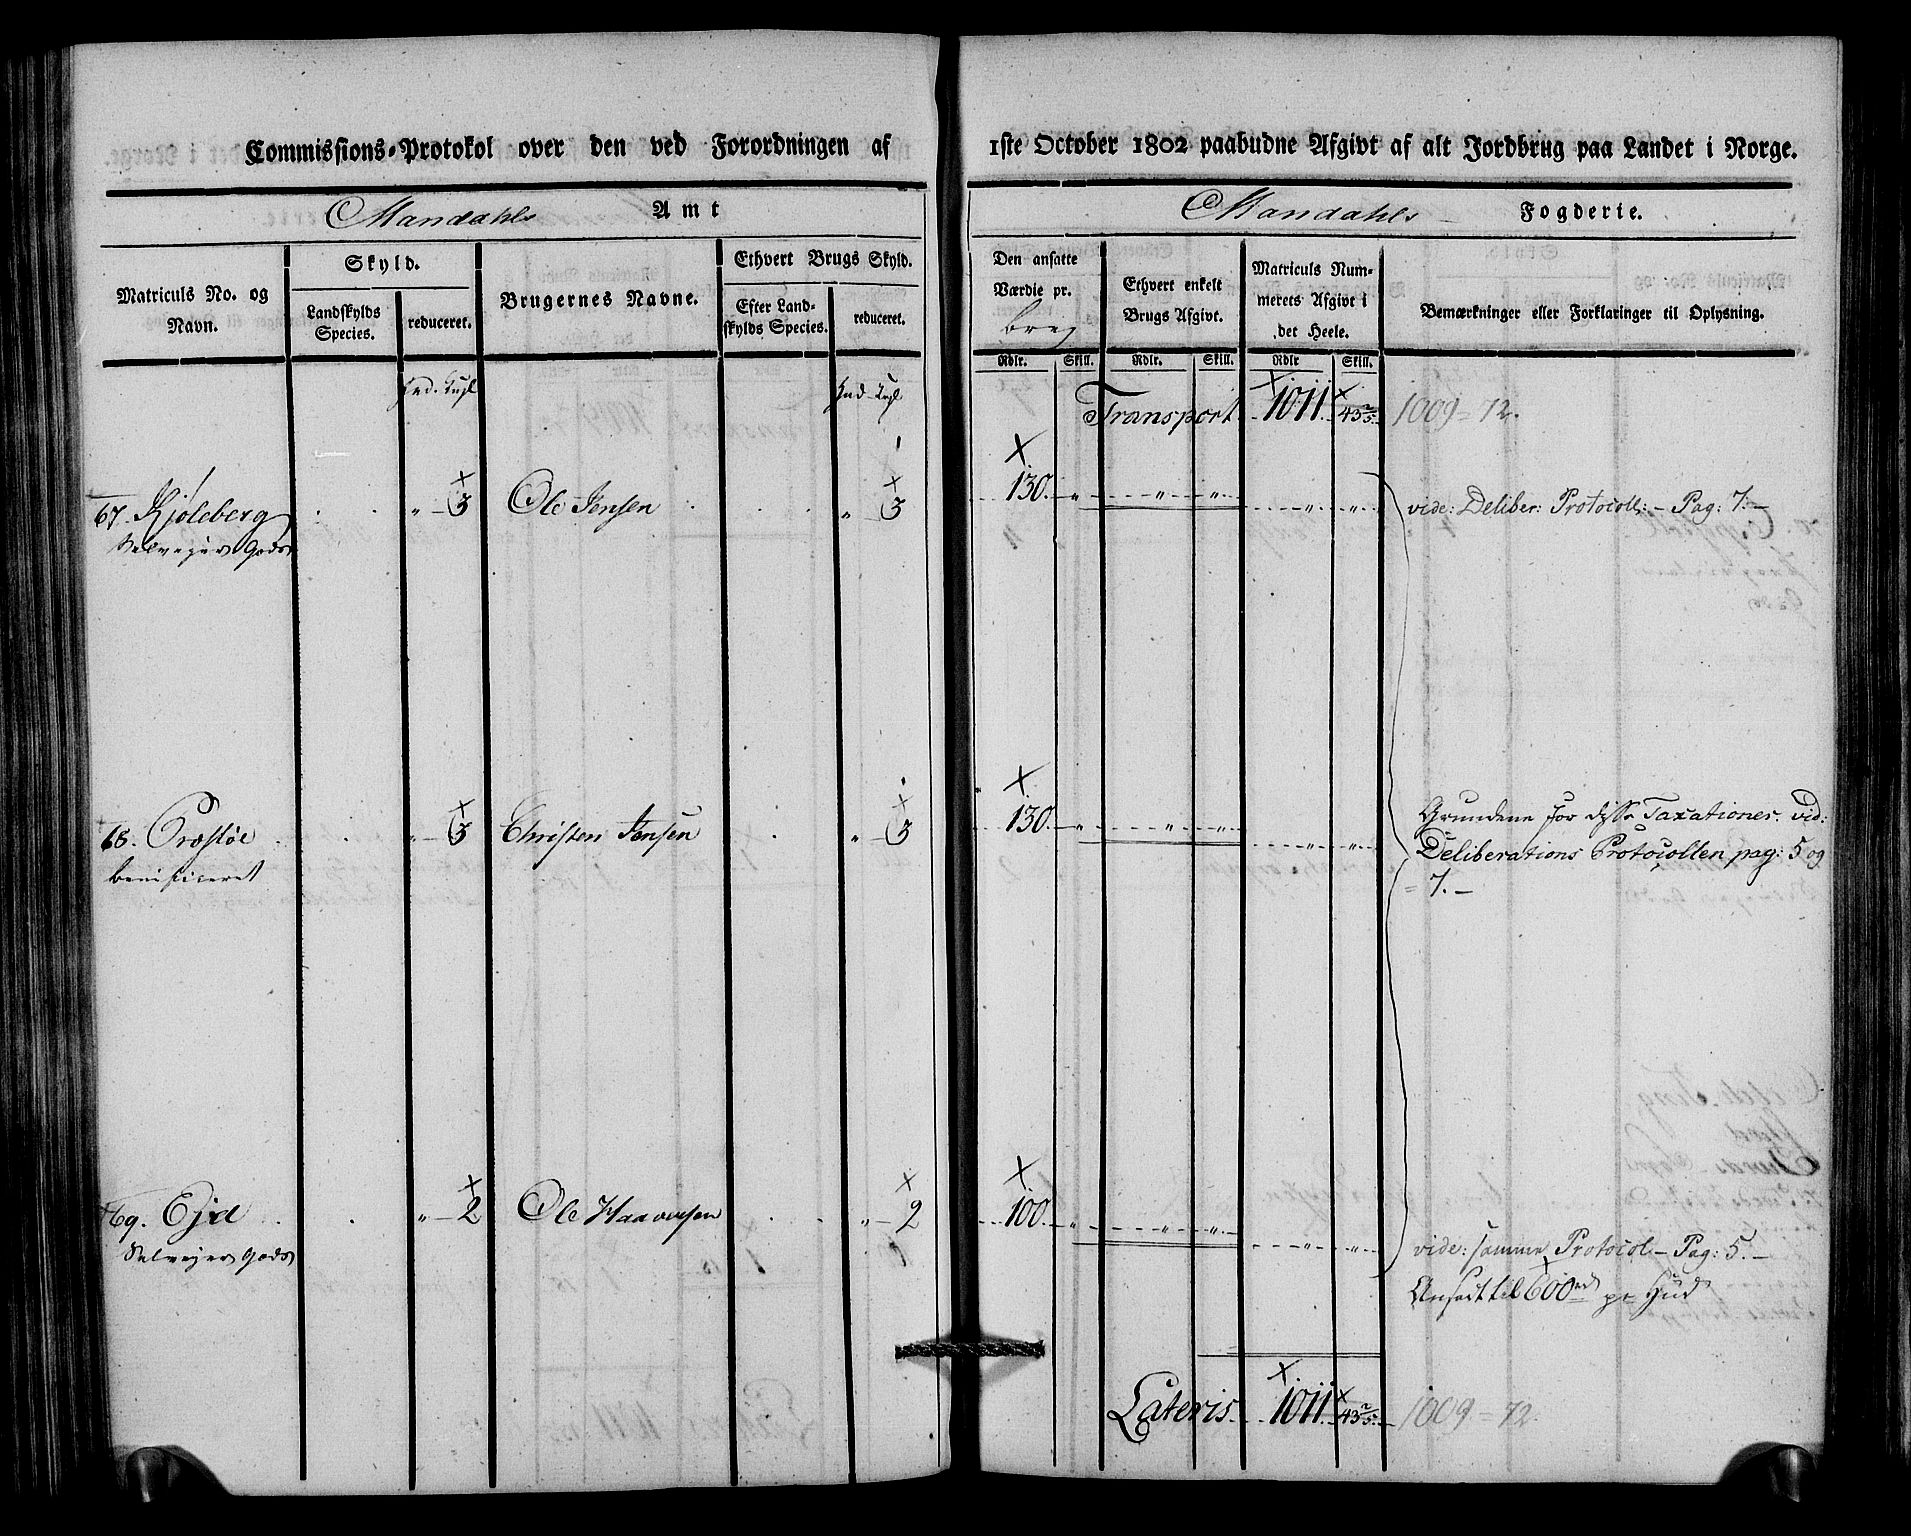 Commissions-Protokol over den ved Forordningen af
Mandahls Amt
Matriculs No. og Navn.
Skyld.
Landskylds Species.
reduceret.
Brugernes Navne.
Ethvert Brugs Skyld.
Efter Landskylds Species.
reduceret.
67. Kjøleberg
Selvejer Gods
" - 3
Ole Jensen
" - 3
68. Præstøe
benificeret
" - 3
Christen Jensen
" - 3
69. Ejd
Selvejer Gods
" - 2
Ole Haavorsen
" - 2
1ste October 1802 paabudne Afgivt af alt Jordbrug paa Landet i Norge.
Mandahls Fogderie.
Den ansatte Værdie pr. brug
Ethvert enkelt Brugs Afgivt.
Matriculs Nummerets Afgivt i det Heele.
Bemærkninger eller Forklaringer til Oplysning.
Rdlr. Skill. Rdlr. Skill. Rdlr Skill.
Transport 1011 43 2/5 1009 = 72.
130. " " " " "
vide: Deliber: Protocoll: - Pag: 7. -
130. " " " " "
Grundene for disse Taxationer vid:
Deliberations Protocollen pag: 5 og
= 7. -
100 " " " " "
vide: samme Protocol - Pag: 5. -
Ansadt til 600 rd pr Hud
Lateris 1011 43 2/5 1009 = 72.